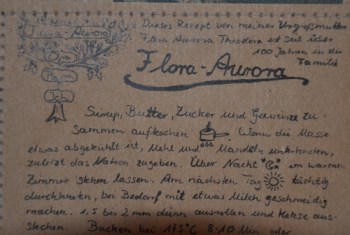 Flora-Aurora
Dieses Rezept von meiner Urgroßmutter
Flora Aurora Theodora ist seit über
100 Jahren in der
Familie
Flora-Aurora
Sirup, Butter, Zucker und Gewürze zu-
sammen aufkochen Wenn die Masse
etwas abgekühlt ist, Mehl und Mandeln unterkneten,
zuletzt das Natron zugeben. Über Nacht im warmen
Zimmer stehen lassen. Am nächsten Tag tüchtig
durchkneten, bei Bedarf mit etwas Milch geschmeidig
machen. 1,5 bis 2 mm dünn ausrollen und Kekse aus-
stechen. Backen bei 175°C 8-10 Min oder